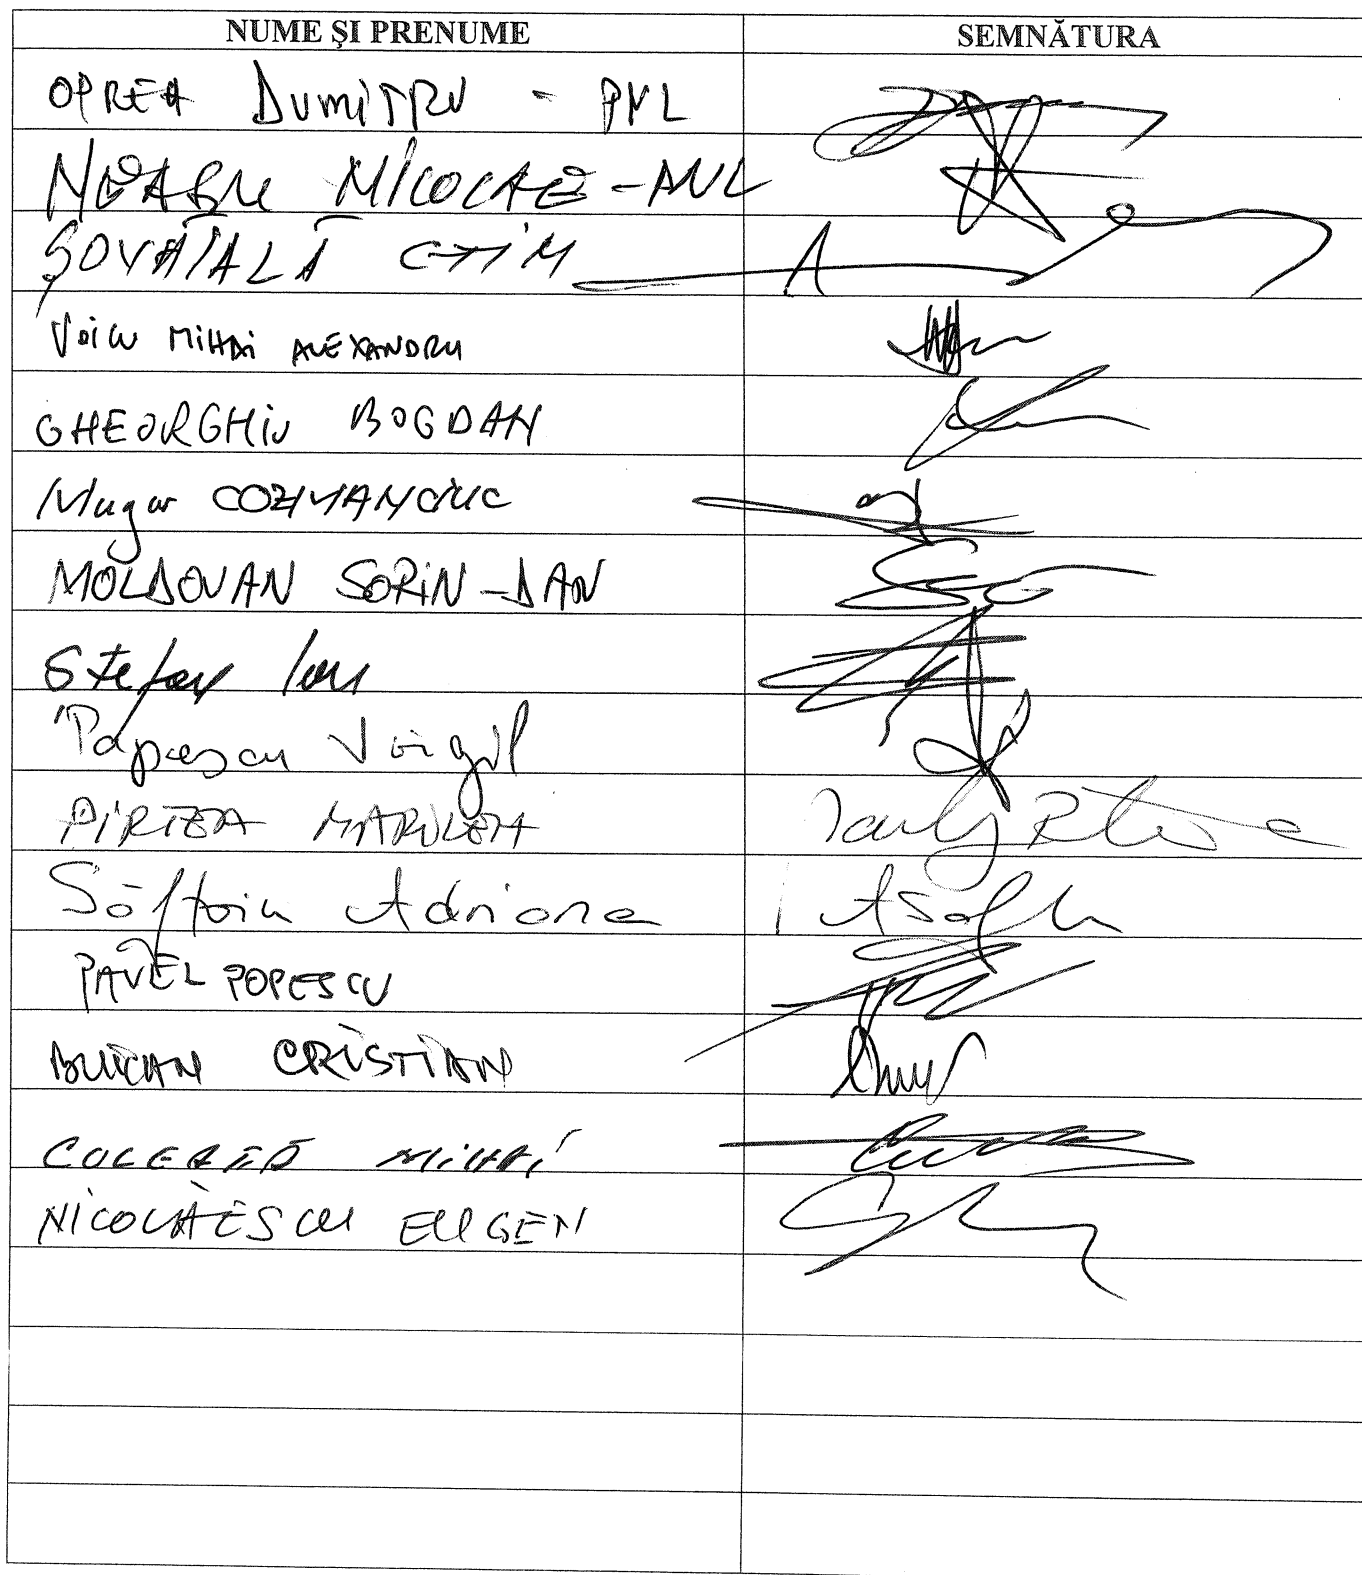 NUME ŞI PRENUME SEMNĂTURA
OPREA DUMITRU - PNL
NEAGU NICOLAE - PNL
ŞOVĂIALĂ
Voicu MIHAI ALEXANDRU
GHEORGHIU BOGDAN
Mugur COZMANCIUC
MOLDOVAN SORIN-DAN
Stefan Ion
Popescu Virgil
PIRTEA MARILENA
Săftoiu Adriana
PAVEL POPESCU
BUICAN CRISTIAN
CULEAFĂ MIHAI
NICOLĂESCU EUGEN